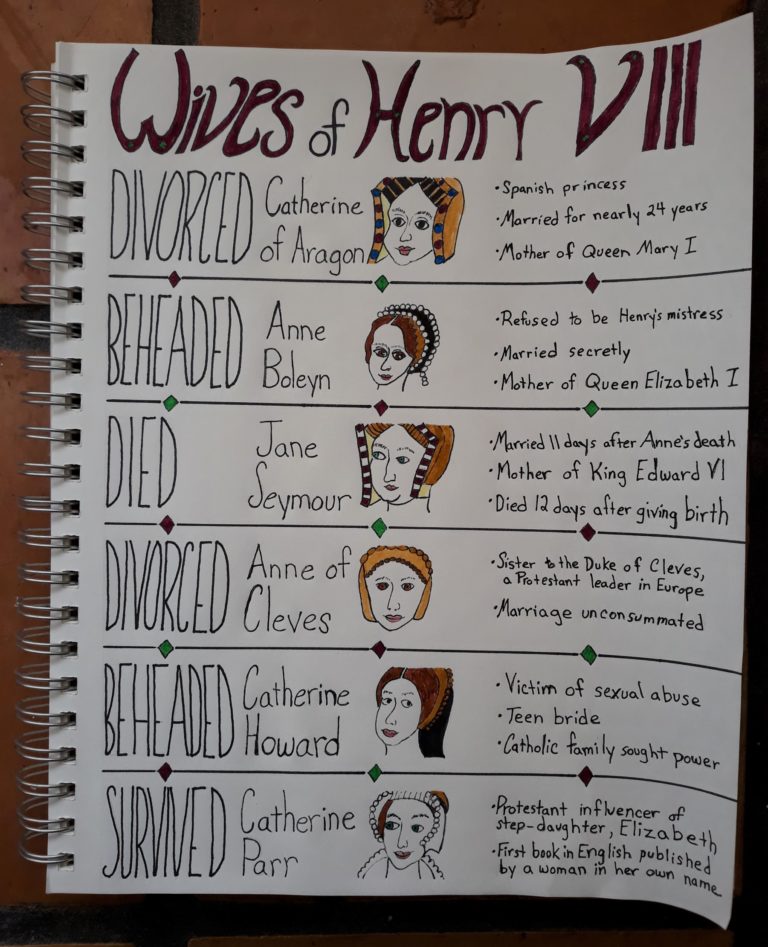 Wives of Henry VIII
DIVORCED
Catherine
of Aragon
• Spanish princess
• Married for nearly 24 years
• Mother of Queen Mary I
BEHEADED
Anne
Boleyn
• Refused to be Henry's mistress
• Married secretly
• Mother of Queen Elizabeth I
DIED
Jane
Seymour
• Married 11 days after Anne's death
• Mother of King Edward VI
• Died 12 days after giving birth
DIVORCED
Anne of
Cleves
• Sister to the Duke of Cleves,
a Protestant leader in Europe
• Marriage unconsummated
BEHEADED
Catherine
Howard
• Victim of sexual abuse
• Teen bride
• Catholic family sought power
SURVIVED
Catherine
Parr
• Protestant influencer of
step-daughter, Elizabeth
• First book in English published
by a woman in her own name